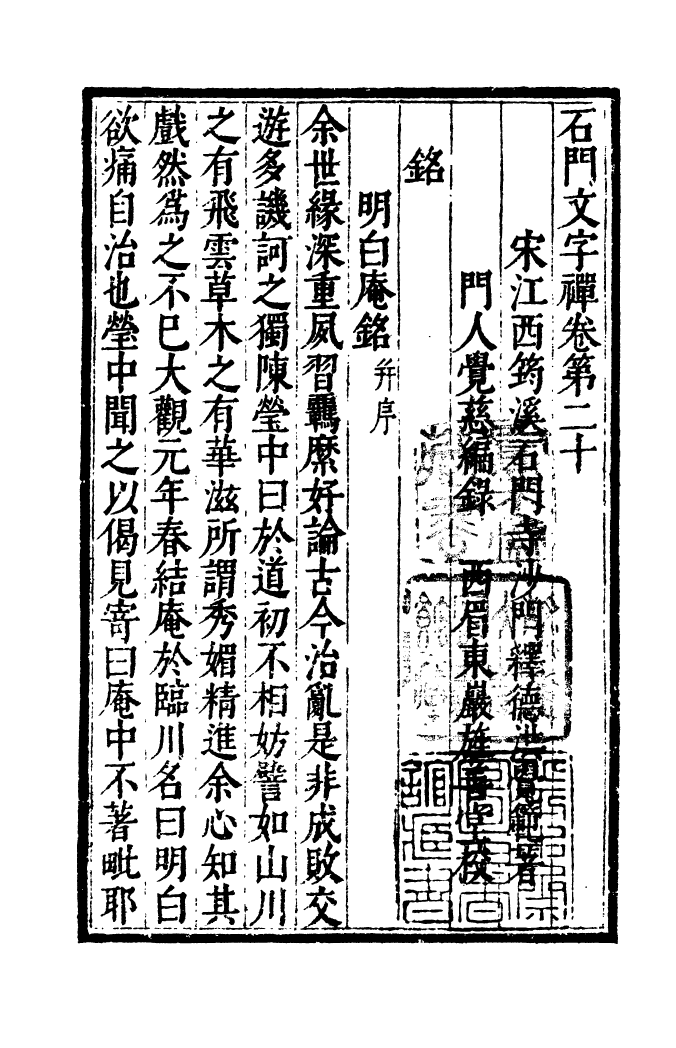 石門文字禪卷第二十
宋江西筠溪石門寺沙門釋德洪覺範著
門人覺慈編錄　西眉東巖旌善堂校
銘
明白庵銘 并序
余世緣深重夙習羈縻好論古今治亂是非成敗交
遊多譏訶之獨陳瑩中曰於道初不相妨譬如山川
之有飛雲草木之有華滋所謂秀媚精進余心知其
戲然為之不已大觀元年春結庵於臨川名曰明白
欲痛自治也瑩中聞之以偈見寄曰庵中不著毗耶